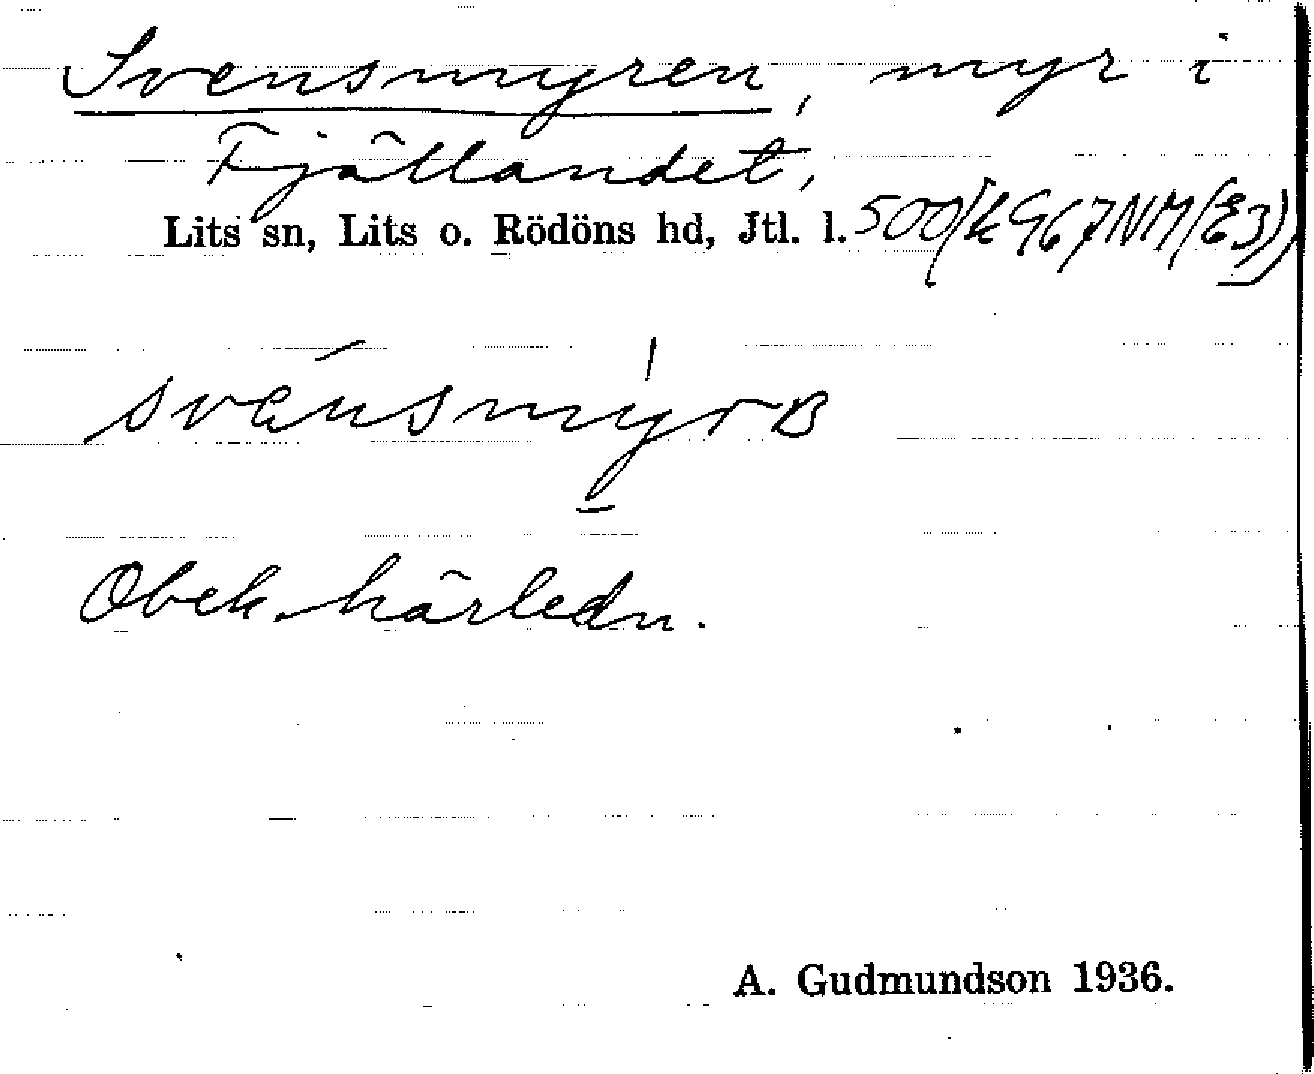 Svensmyren, myr i
Fjällandet,
Lits sn, Lits o. Rödöns hd, Jtl. l.
svänsmyrB
Obek. härledn.
A. Gudmundson 1936.